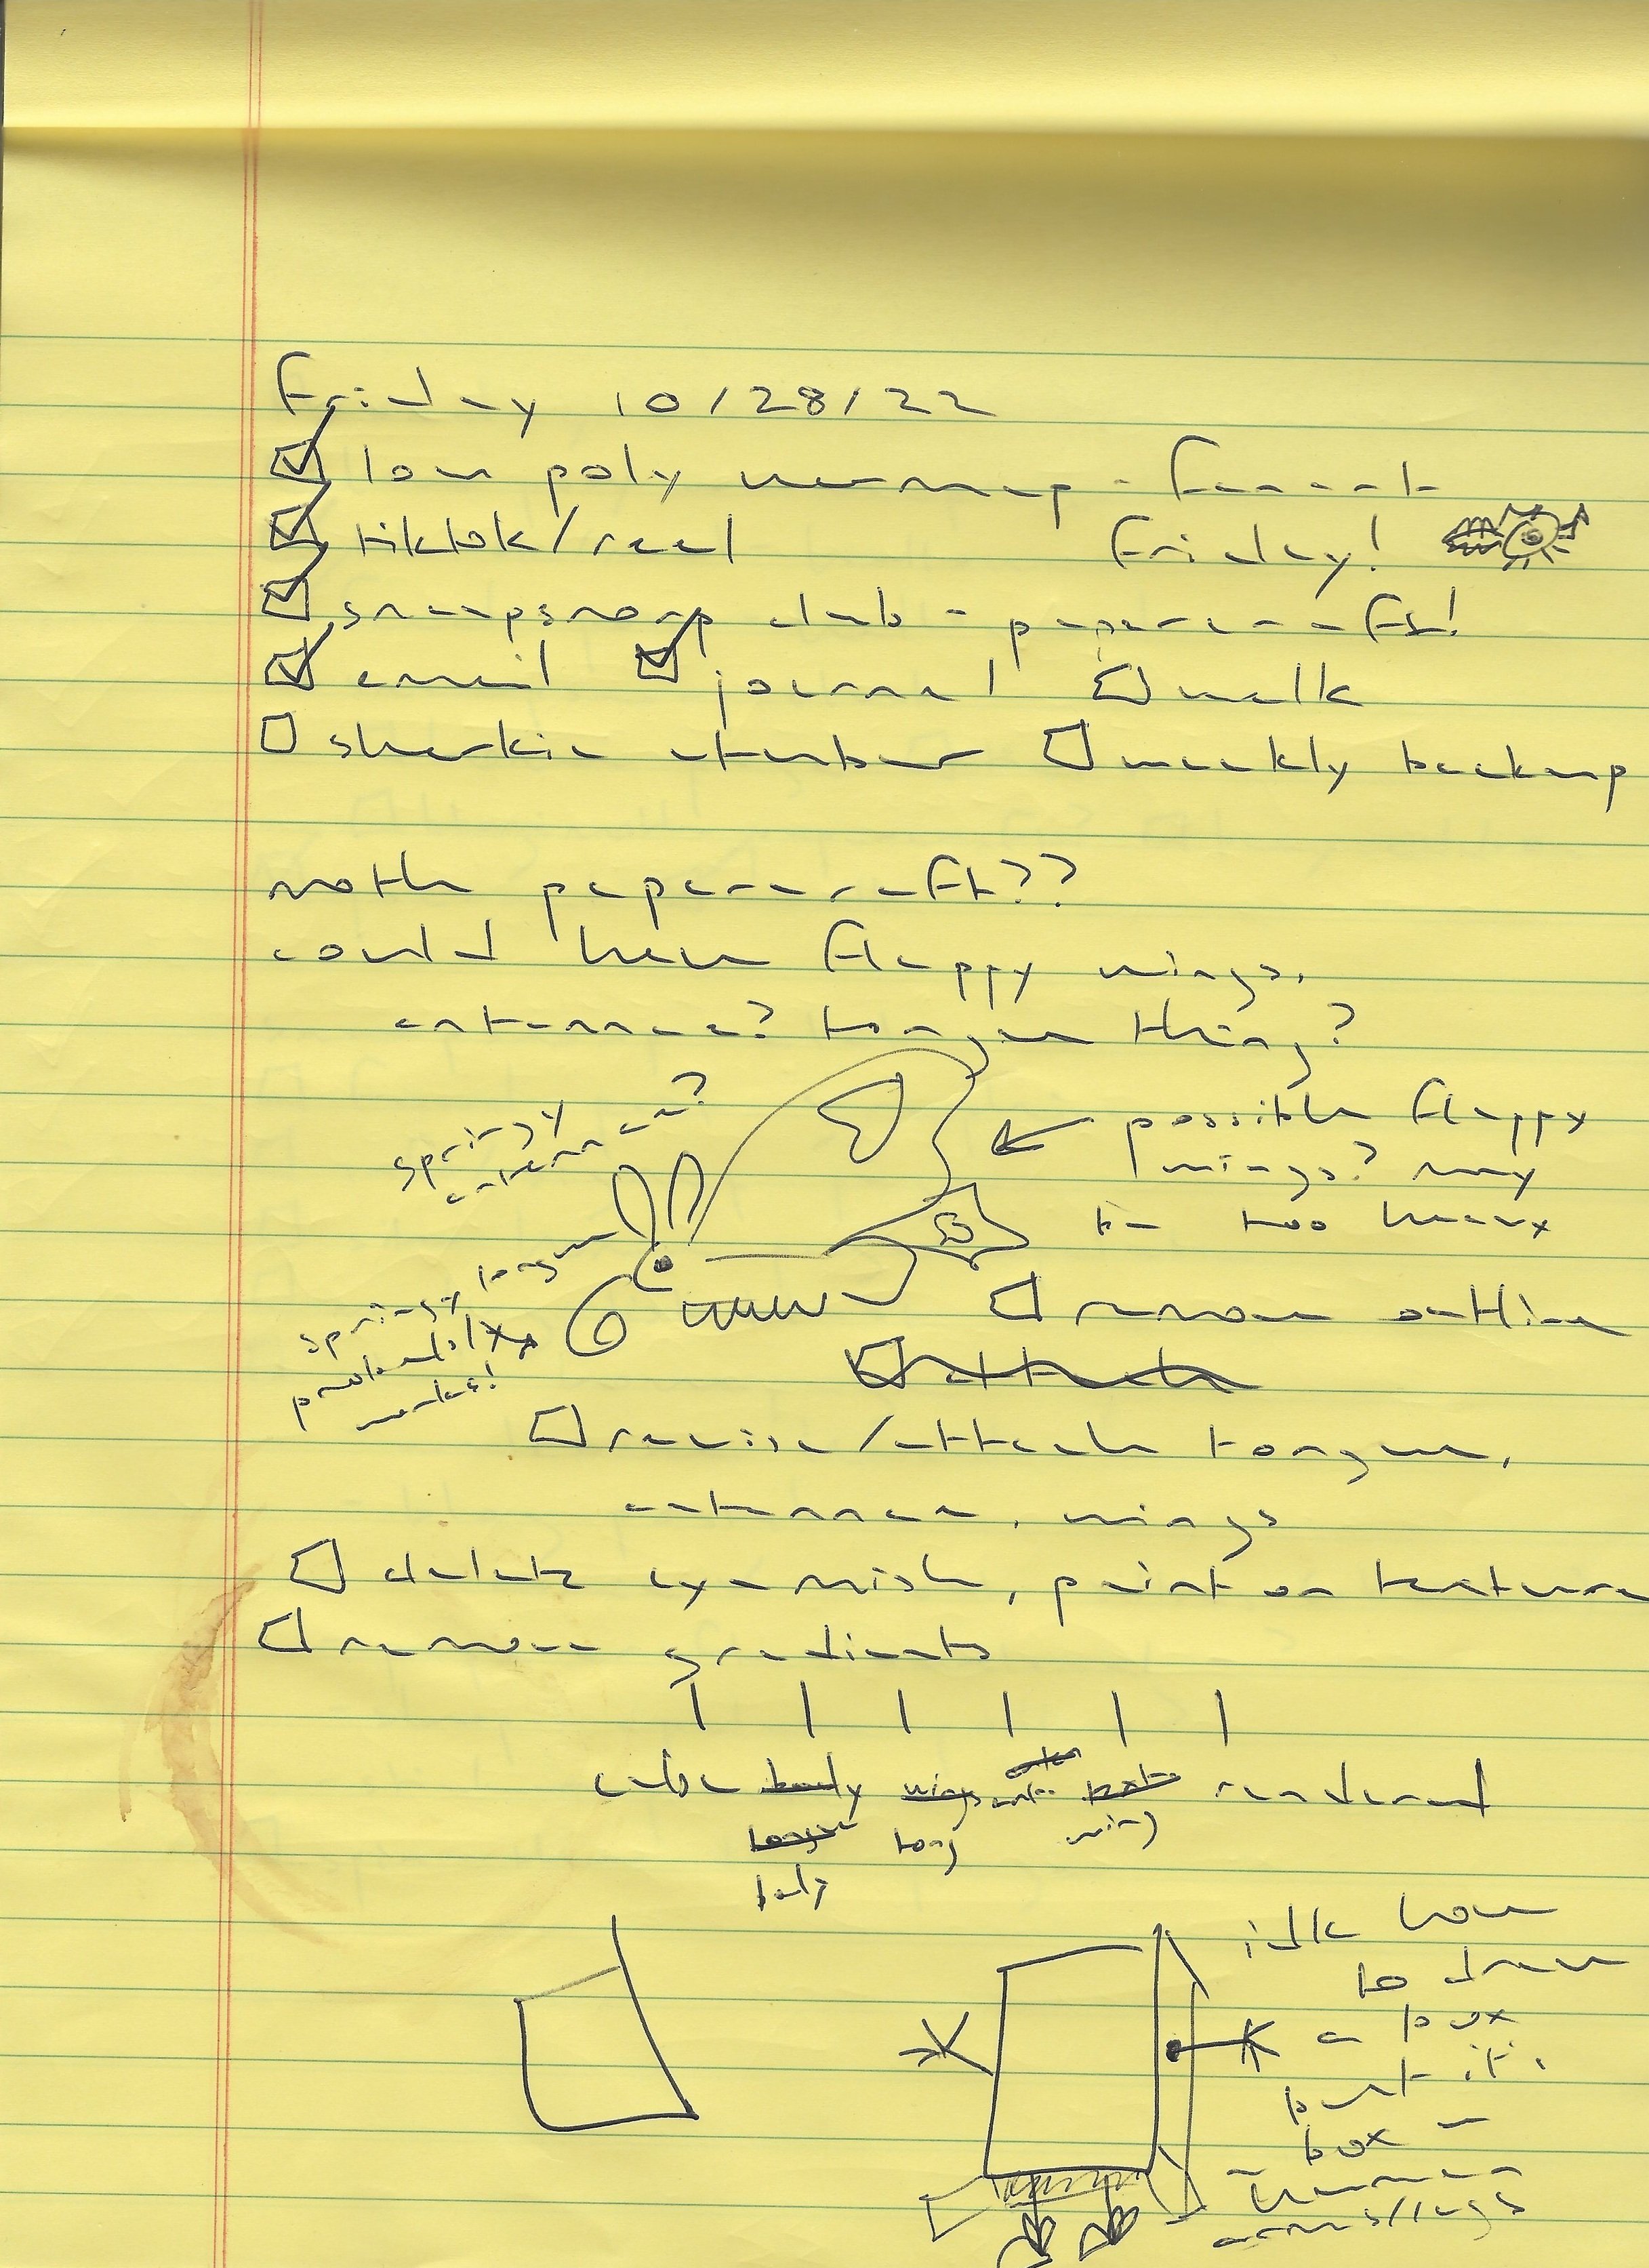 Friday 10/28/22
low poly warmup - forest
tiktok/reel Friday!
snoopsnoop club - papercrafts!
email journal walk
sharkie vtuber weekly backup
moth papercraft??
could have flappy wings,
antennae? tongue thing?
springy antennae?
possible flappy
wings? may
be too heavy
springy tongue
probably
works!
remove outline
revise/attach tongue,
antennae, wings
delete eye mish, paint on texture
remove gradients
cube body wings ante rendered
tongue tong wing
body
idk how
to draw
a box
but it's
box w
human
arms/legs